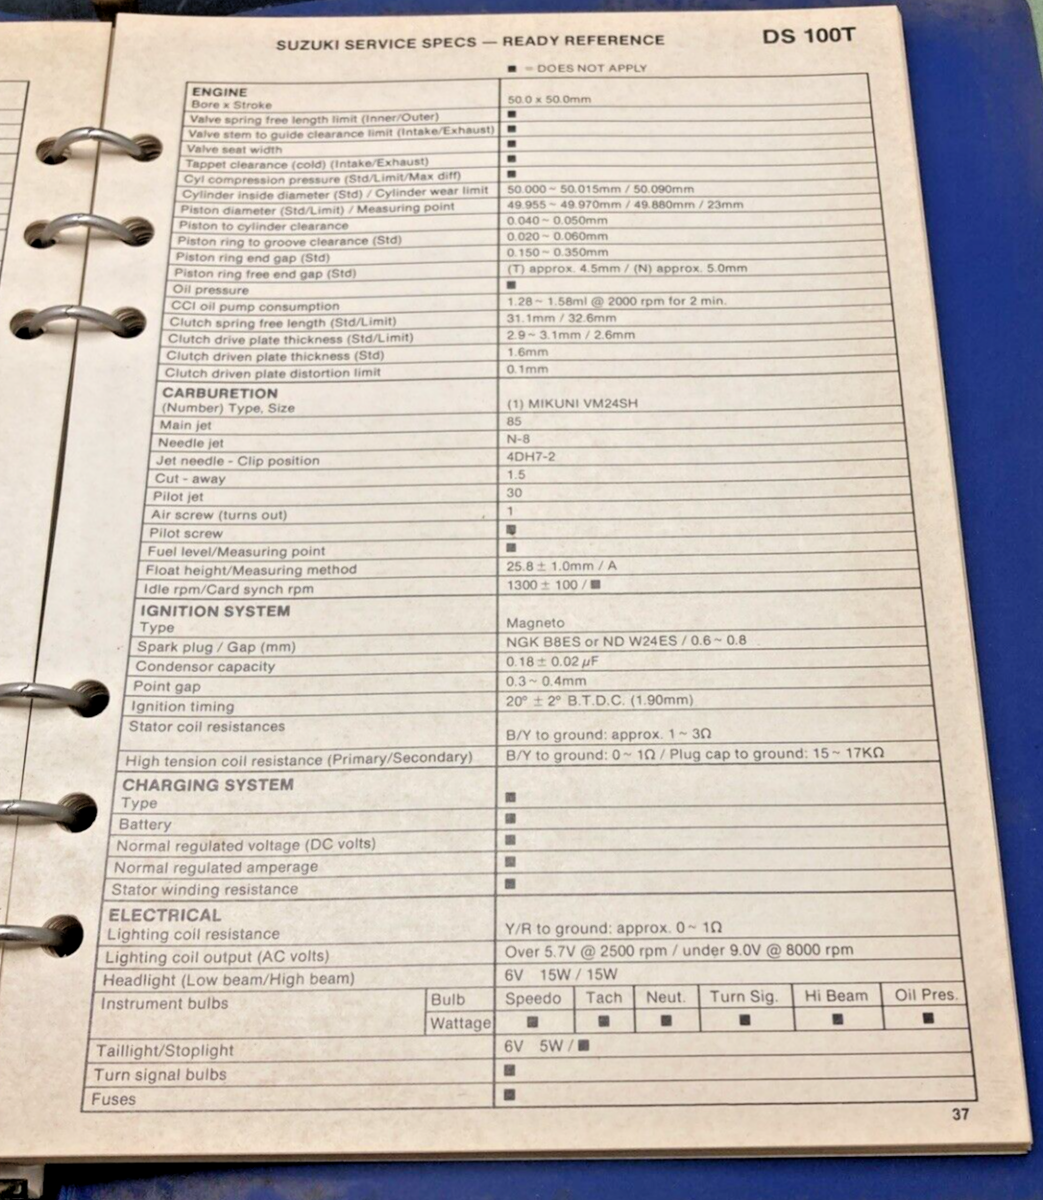 SUZUKI SERVICE SPECS — READY REFERENCE DS 100T
■ = DOES NOT APPLY
ENGINE
Bore x Stroke 50.0 x 50.0mm
Valve spring free length limit (Inner/Outer) ■
Valve stem to guide clearance limit (Intake/Exhaust) ■
Valve seat width ■
Tappet clearance (cold) (Intake/Exhaust) ■
Cyl compression pressure (Std/Limit/Max diff) ■
Cylinder inside diameter (Std) / Cylinder wear limit 50.000 ~ 50.015mm / 50.090mm
Piston diameter (Std/Limit) / Measuring point 49.955 ~ 49.970mm / 49.880mm / 23mm
Piston to cylinder clearance 0.040 ~ 0.050mm
Piston ring to groove clearance (Std) 0.020 ~ 0.060mm
Piston ring end gap (Std) 0.150 ~ 0.350mm
Piston ring free end gap (Std) (T) approx. 4.5mm / (N) approx. 5.0mm
Oil pressure ■
CCI oil pump consumption 1.28 ~ 1.58ml @ 2000 rpm for 2 min.
Clutch spring free length (Std/Limit) 31.1mm / 32.6mm
Clutch drive plate thickness (Std/Limit) 2.9 ~ 3.1mm / 2.6mm
Clutch driven plate thickness (Std) 1.6mm
Clutch driven plate distortion limit 0.1mm
CARBURETION
(Number) Type, Size (1) MIKUNI VM24SH
Main jet 85
Needle jet N-8
Jet needle - Clip position 4DH7-2
Cut - away 1.5
Pilot jet 30
Air screw (turns out) 1
Pilot screw ■
Fuel level/Measuring point ■
Float height/Measuring method 25.8 ± 1.0mm / A
Idle rpm/Card synch rpm 1300 ± 100 / ■
IGNITION SYSTEM
Type Magneto
Spark plug / Gap (mm) NGK B8ES or ND W24ES / 0.6 ~ 0.8
Condensor capacity 0.18 ± 0.02 µF
Point gap 0.3 ~ 0.4mm
Ignition timing 20° ± 2° B.T.D.C. (1.90mm)
Stator coil resistances B/Y to ground: approx. 1 ~ 3Ω
High tension coil resistance (Primary/Secondary) B/Y to ground: 0 ~ 1Ω / Plug cap to ground: 15 ~ 17KΩ
CHARGING SYSTEM
Type ■
Battery ■
Normal regulated voltage (DC volts) ■
Normal regulated amperage ■
Stator winding resistance ■
ELECTRICAL
Lighting coil resistance Y/R to ground: approx. 0 ~ 1Ω
Lighting coil output (AC volts) Over 5.7V @ 2500 rpm / under 9.0V @ 8000 rpm
Headlight (Low beam/High beam) 6V 15W / 15W
Instrument bulbs Bulb Speedo Tach Neut. Turn Sig. Hi Beam Oil Pres.
Wattage ■ ■ ■ ■ ■ ■
Taillight/Stoplight 6V 5W / ■
Turn signal bulbs ■
Fuses ■
37